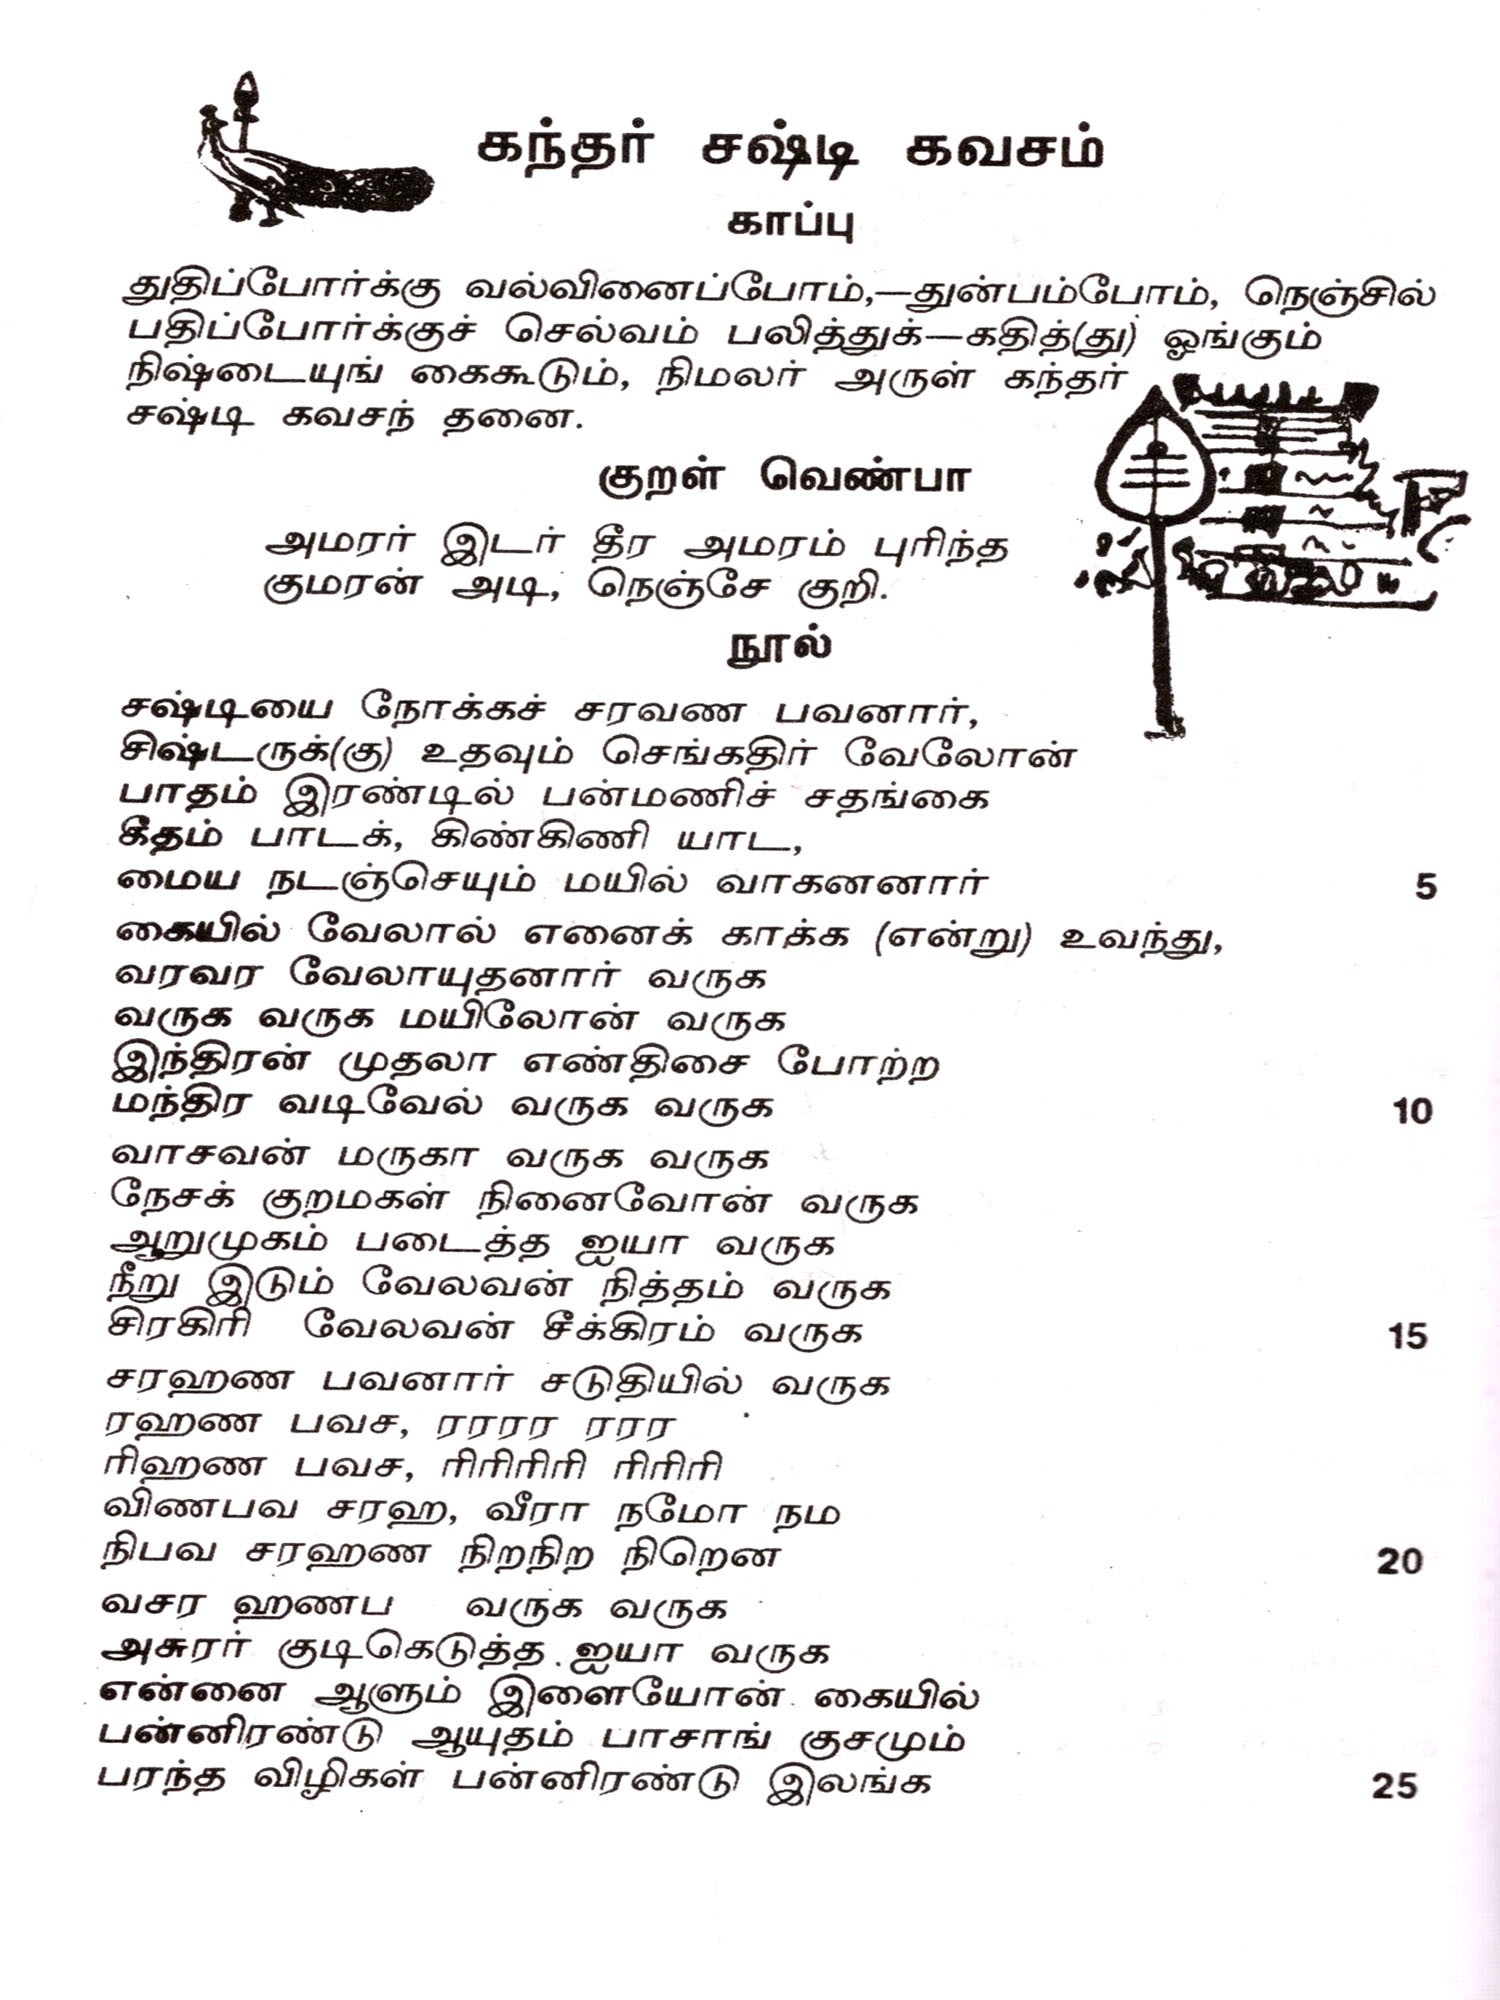 கந்தர் சஷ்டி கவசம்
காப்பு
துதிப்போர்க்கு வல்வினைப்போம்,—துன்பம்போம், நெஞ்சில்
பதிப்போர்க்குச் செல்வம் பலித்துக்—கதித்(து) ஓங்கும்
நிஷ்டையுங் கைகூடும், நிமலர் அருள் கந்தர்
சஷ்டி கவசந் தனை.
குறள் வெண்பா
அமரர் இடர் தீர அமரம் புரிந்த
குமரன் அடி, நெஞ்சே குறி.
நூல்
சஷ்டியை நோக்கச் சரவண பவனார்,
சிஷ்டருக்(கு) உதவும் செங்கதிர் வேலோன்
பாதம் இரண்டில் பன்மணிச் சதங்கை
கீதம் பாடக், கிண்கிணி யாட,
மைய நடஞ்செயும் மயில் வாகனனார் 5
கையில் வேலால் எனைக் காக்க (என்று) உவந்து,
வரவர வேலாயுதனார் வருக
வருக வருக மயிலோன் வருக
இந்திரன் முதலா எண்திசை போற்ற
மந்திர வடிவேல் வருக வருக 10
வாசவன் மருகா வருக வருக
நேசக் குறமகள் நினைவோன் வருக
ஆறுமுகம் படைத்த ஐயா வருக
நீறு இடும் வேலவன் நித்தம் வருக
சிரகிரி வேலவன் சீக்கிரம் வருக 15
சரஹண பவனார் சடுதியில் வருக
ரஹண பவச, ரரரர ரரர
ரிஹண பவச, ரிரிரிரி ரிரிரி
விணபவ சரஹ, வீரா நமோ நம
நிபவ சரஹண நிறநிற நிறென 20
வசர ஹணப வருக வருக
அசுரர் குடிகெடுத்த ஐயா வருக
என்னை ஆளும் இளையோன் கையில்
பன்னிரண்டு ஆயுதம் பாசாங் குசமும்
பரந்த விழிகள் பன்னிரண்டு இலங்க 25